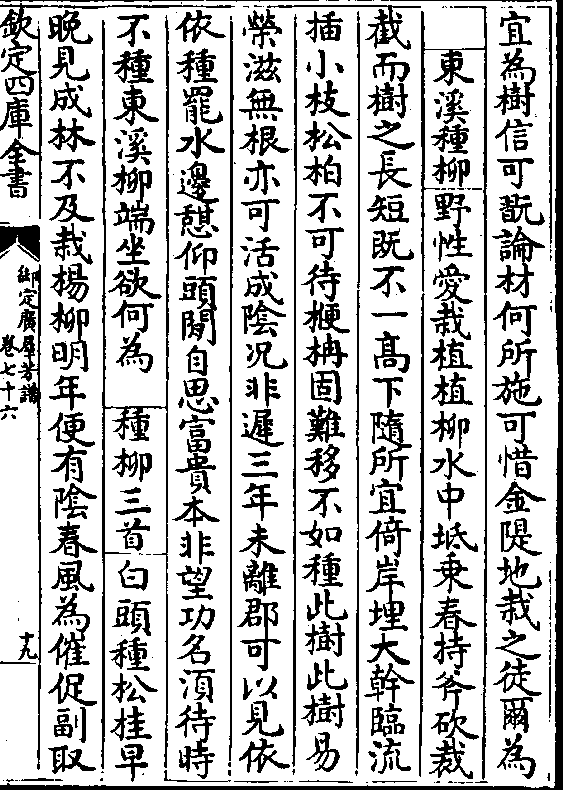 宜為樹信可翫論材何所施可惜金隄地栽之徒爾為
東溪種柳 野性愛栽植植柳水中坻乗春持斧斫裁
截而樹之長短既不一髙下隨所宜倚岸埋大幹臨流
插小枝松柏不可待楩柟固難移不如種此樹此樹易
榮滋無根亦可活成陰况非遲三年未離郡可以見依
依種罷水邊憇仰頭閒自思富貴本非望功名湏待時
不種東溪柳端坐欲何為 種柳三首 白頭種松桂早
晚見成林不及栽楊柳明年便有陰春風為催促副取
欽定四庫全書
御定廣羣芳譜
卷七十六
十九